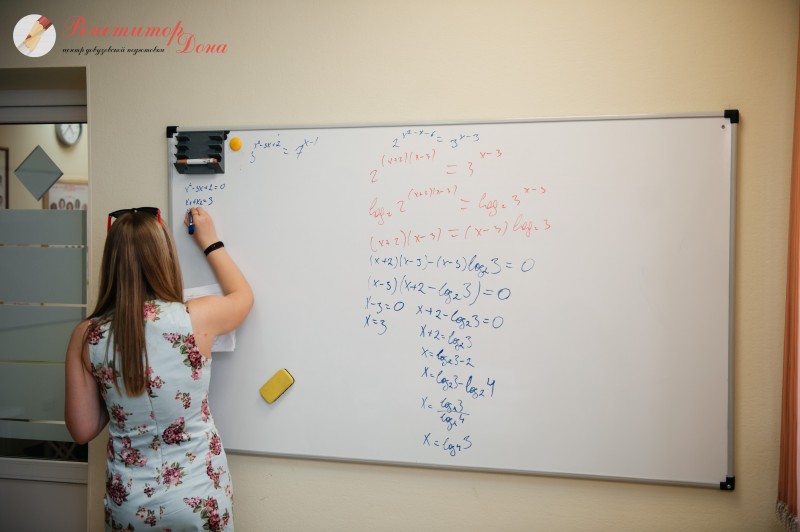 Репетитор
Дона
центр довузовской подготовки
5^(x²-3x+2) = 7^(x-1)
x²-3x+2=0
x₁+x₂=3
2^(x²-x-6) = 3^(x-3)
2^((x+2)(x-3)) = 3^(x-3)
log₂ 2^((x+2)(x-3)) = log₂ 3^(x-3)
(x+2)(x-3) = (x-3) log₂3
(x+2)(x-3)-(x-3)log₂3=0
(x-3)(x+2-log₂3)=0
x-3=0 x+2-log₂3=0
x=3
x+2=log₂3
x=log₂3-2
x=log₂3-log₂4
x= log₂3/log₂4
x=log₄3